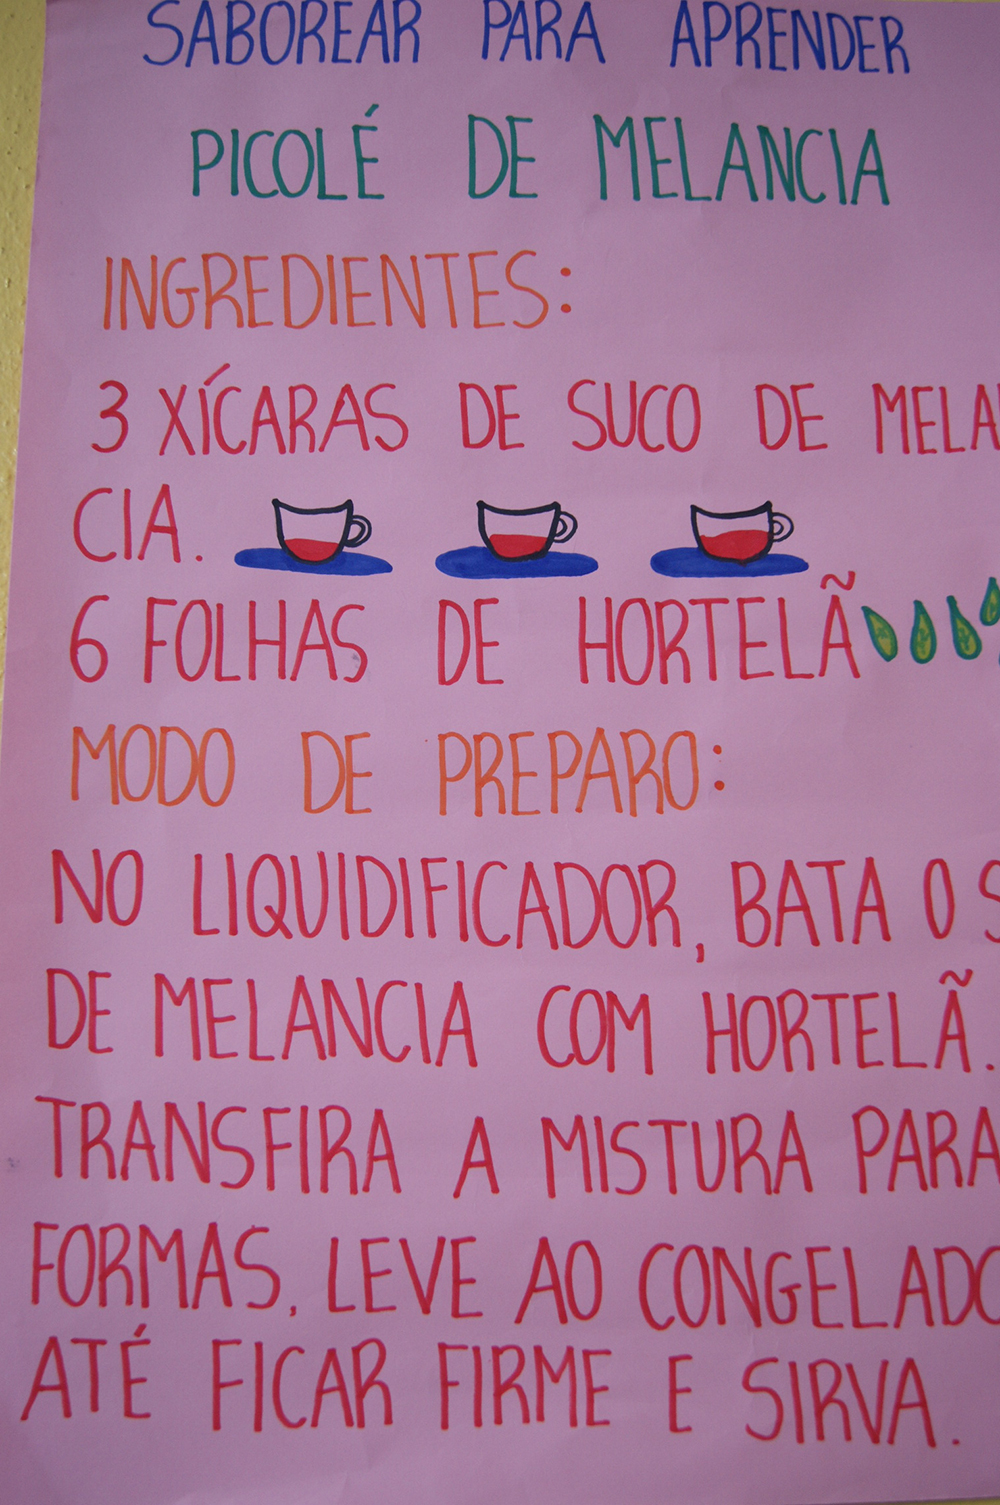 SABOREAR PARA APRENDER
PICOLÉ DE MELANCIA
INGREDIENTES:
3 XÍCARAS DE SUCO DE MELA
CIA.
6 FOLHAS DE HORTELÃ
MODO DE PREPARO:
NO LIQUIDIFICADOR, BATA O S
DE MELANCIA COM HORTELÃ.
TRANSFIRA A MISTURA PARA
FORMAS, LEVE AO CONGELADO
ATÉ FICAR FIRME E SIRVA.